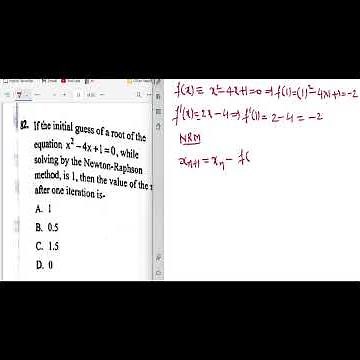 82. If the initial guess of a root of the
equation x² − 4x + 1 = 0, while
solving by the Newton-Raphson
method, is 1, then the value of the
after one iteration is-
A. 1
B. 0.5
C. 1.5
D. 0
f(x) ≡ x² − 4x + 1 = 0 ⇒ f(1) = (1)² − 4×1 + 1 = −2
f'(x) = 2x − 4 ⇒ f'(1) = 2 − 4 = −2
NRM
xₙ₊₁ = xₙ − f(